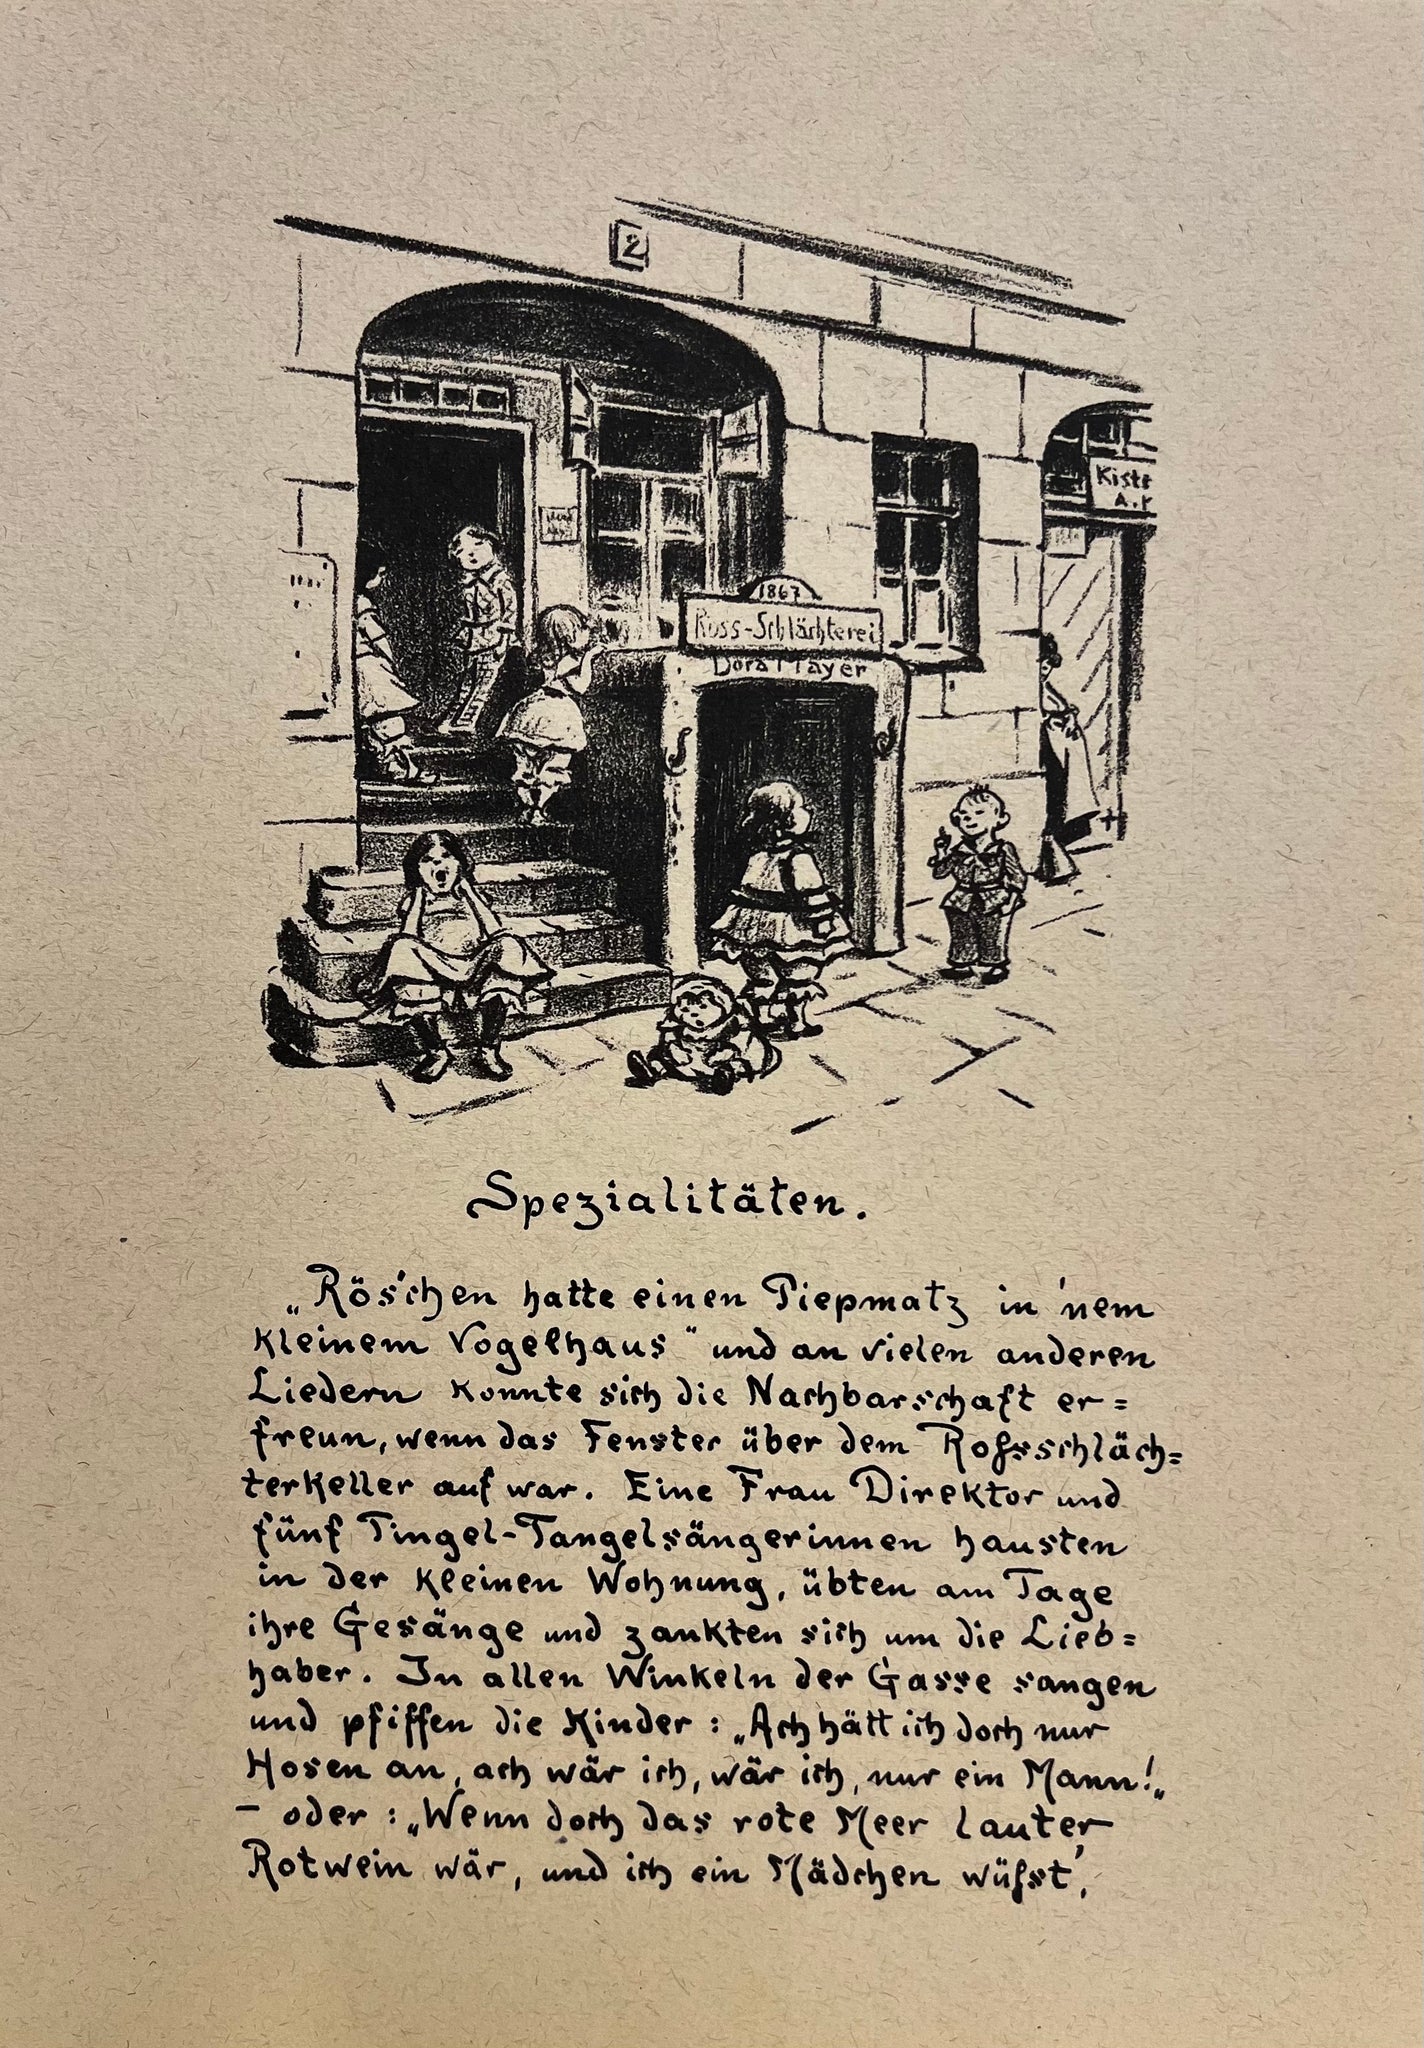 2
1867
Ross-Schlächterei
Dora Mayer
Kiste
A.
Spezialitäten.
„Rös'chen hatte einen Piepmatz in 'nem
kleinem Vogelhaus" und an vielen anderen
Liedern konnte sich die Nachbarschaft er=
freun, wenn das Fenster über dem Roßschläch=
terkeller auf war. Eine Frau Direktor und
fünf Tingel-Tangelsängerinnen hausten
in der kleinen Wohnung, übten am Tage
ihre Gesänge und zankten sich um die Lieb=
haber. In allen Winkeln der Gasse sangen
und pfiffen die Kinder: „Ach hätt ich doch nur
Hosen an, ach wär ich, wär ich, nur ein Mann!„
– oder: „Wenn doch das rote Meer lauter
Rotwein wär, und ich ein Mädchen wüßst',